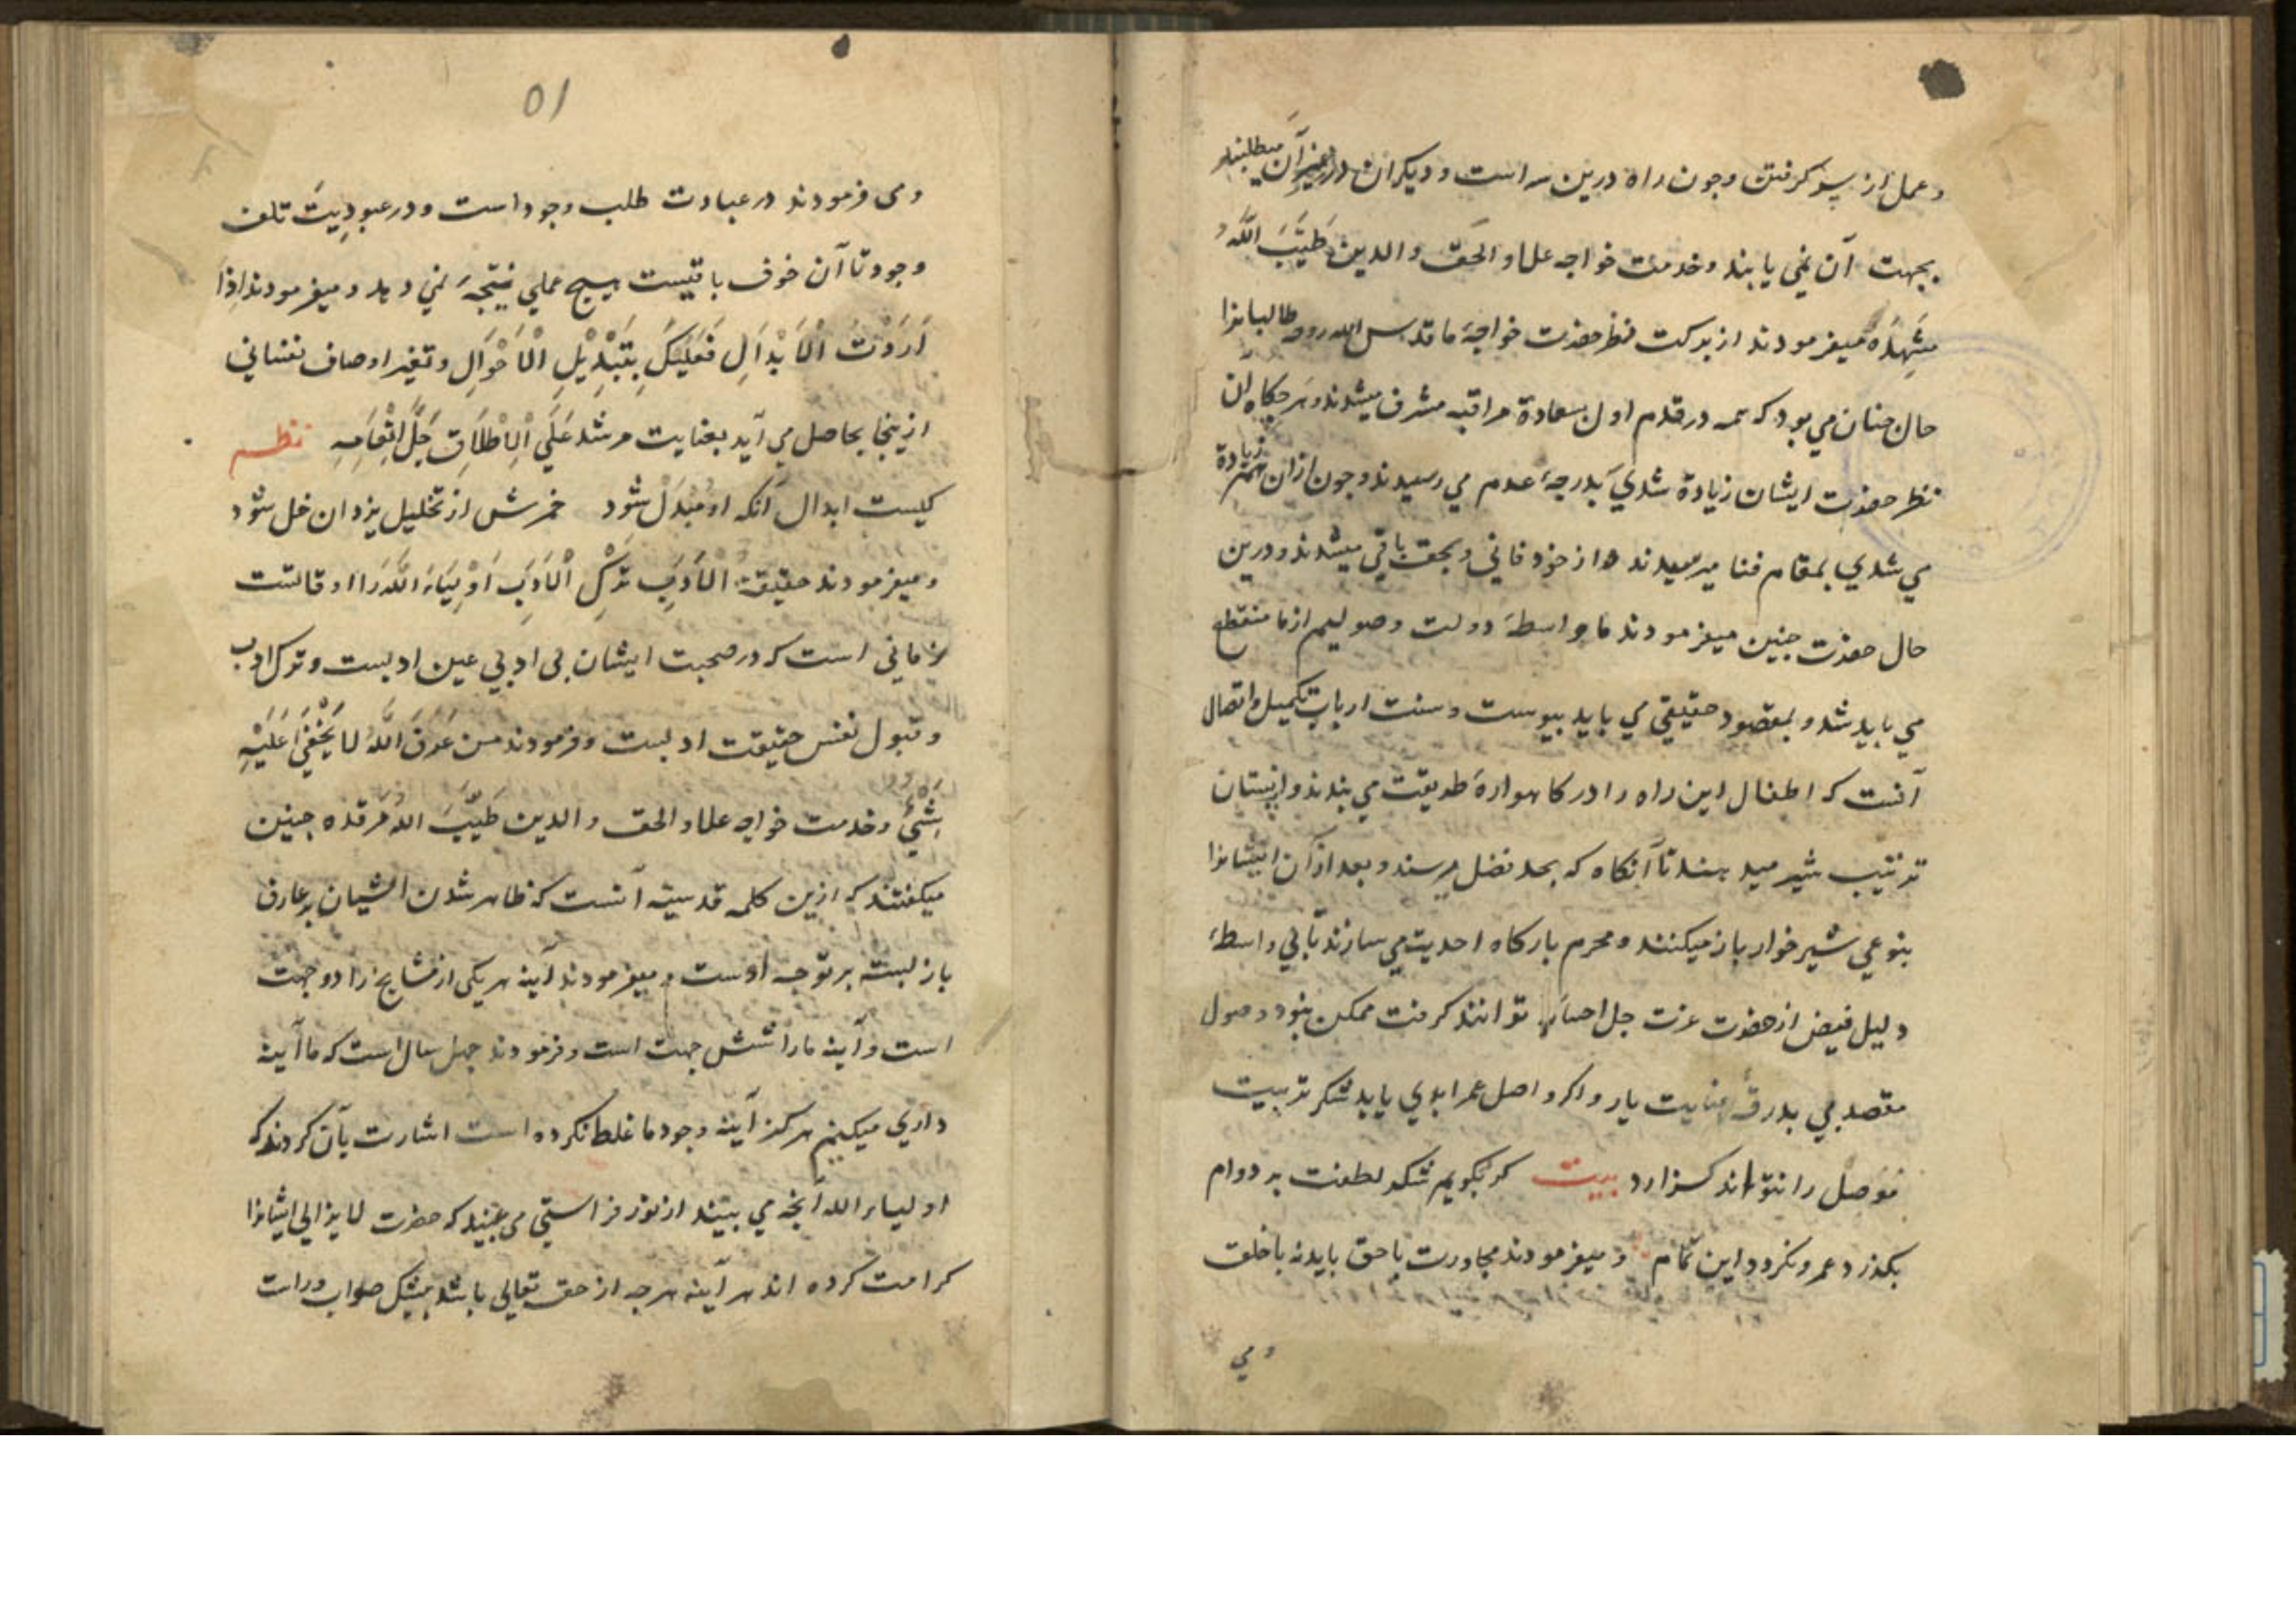 و عمل از سر گرفتن و چون راه درین سه است و دیکران در غیر آن میطلبند
بجهت آن نمی یابند و خدمت خواجه علاء الحق والدین طَیَّبَ اللّهُ
مشهدَه میفرمودند از برکت نظر حضرت خواجهٔ ما قدس الله روحه طالبانرا
حال چنان می بود که همه در قدم اول بسعادة مراقبه مشرف میشدند و هرچکاه آن
نظر حضرت ایشان زیادة شدی بدرجهٔ عدم می رسیدند و چون از آن هم زیادة تر
می شدی بمقام فنا میرسیدند و از خود فانی و بحق باقی میشدند و درین
حال حضرت چنین میفرمودند ما واسطهٔ دولت وصولیم از ما منقطع
می باید شد و بمقصود حقیقی می باید پیوست و سنت ارباب تکمیل و اتصال
آنست که اطفال این راه را در کاهوارهٔ طریقت می بندند و از پستان
تربیت شیر میدهند تا آنکاه که بحد فصل میرسند و بعد از آن ایشانرا
بنوعی شیر خوار باز میکنند و محرم بارکاه احدیت می سازند تا بی واسطهٔ
دلیل فیض از حضرت عزت جل احسانه توانند کرفت ممکن نبود وصول
مقصد بی بدرقهٔ عنایت یار و اکر واصل عمر ابدی یابد شکر تربیت
موصل را نتواند کزارد بیت کر بکویم شکر لطفت بر دوام
بکذرد عمر و نکردد این تمام و میفرمودند مجاورت با حق باید نه با خلق
و می
٥١
و می فرمودند در عبادت طلب وجود است و در عبودِیَت تلف
وجود تا آن خوف باقیست هیچ عملی نتیجهَ نمی دهد و میفرمودند اِذَا
اَرَدْتَ الْاَبْدَالِ فَعَلَیْکَ بِتَبْدِیْلِ الْاَحْوَالِ و تغیر اوصاف نفسانی
ازینجا بحاصل می آید بعنایت مرشد عَلَی الْاِطْلَاقِ جَلَّ اِنْعَامِهِ نظم
کیست ابدال آنکه او مُبْدَل شود خمرش از تخلیل یزدان خل شود
و میفرمودند حقیقة الْاَدَبِ تَرْکِ الْاَدَبِ اَوْلِیَاءَ اللّه را اوقاتست
زمانی است که در صحبت ایشان بی ادبی عین ادبست و ترک ادب
و قبول نفس حقیقت ادبست و فرمودند من عَرَفَ اللّهُ لا یَخْفَی عَلَیْهِ
شَیْئٌ و خدمت خواجه علاء الحق والدین طَیَّبَ اللّهُ مَرقده چنین
میکفتند که ازین کلمهٔ قدسیه آنست که ظاهر شدن اشیان بر عارف
باز بسته بر توجه اوست و میفرمودند آینه هر یکی از مشایخ را دو جهت
است و آینه ما را شش جهت است و فرمودند چهل سال است که ما آینه
داری میکنیم هرکز آینه وجود ما غلط نکرده است اشارت بآن کردند که
اولیاء الله آنچه می بینند از نور فراستی می بینند که حضرت لایزالی ایشانرا
کرامت کرده اند هر آینه هرچه از حق تعالی باشد بیشک صواب و راست